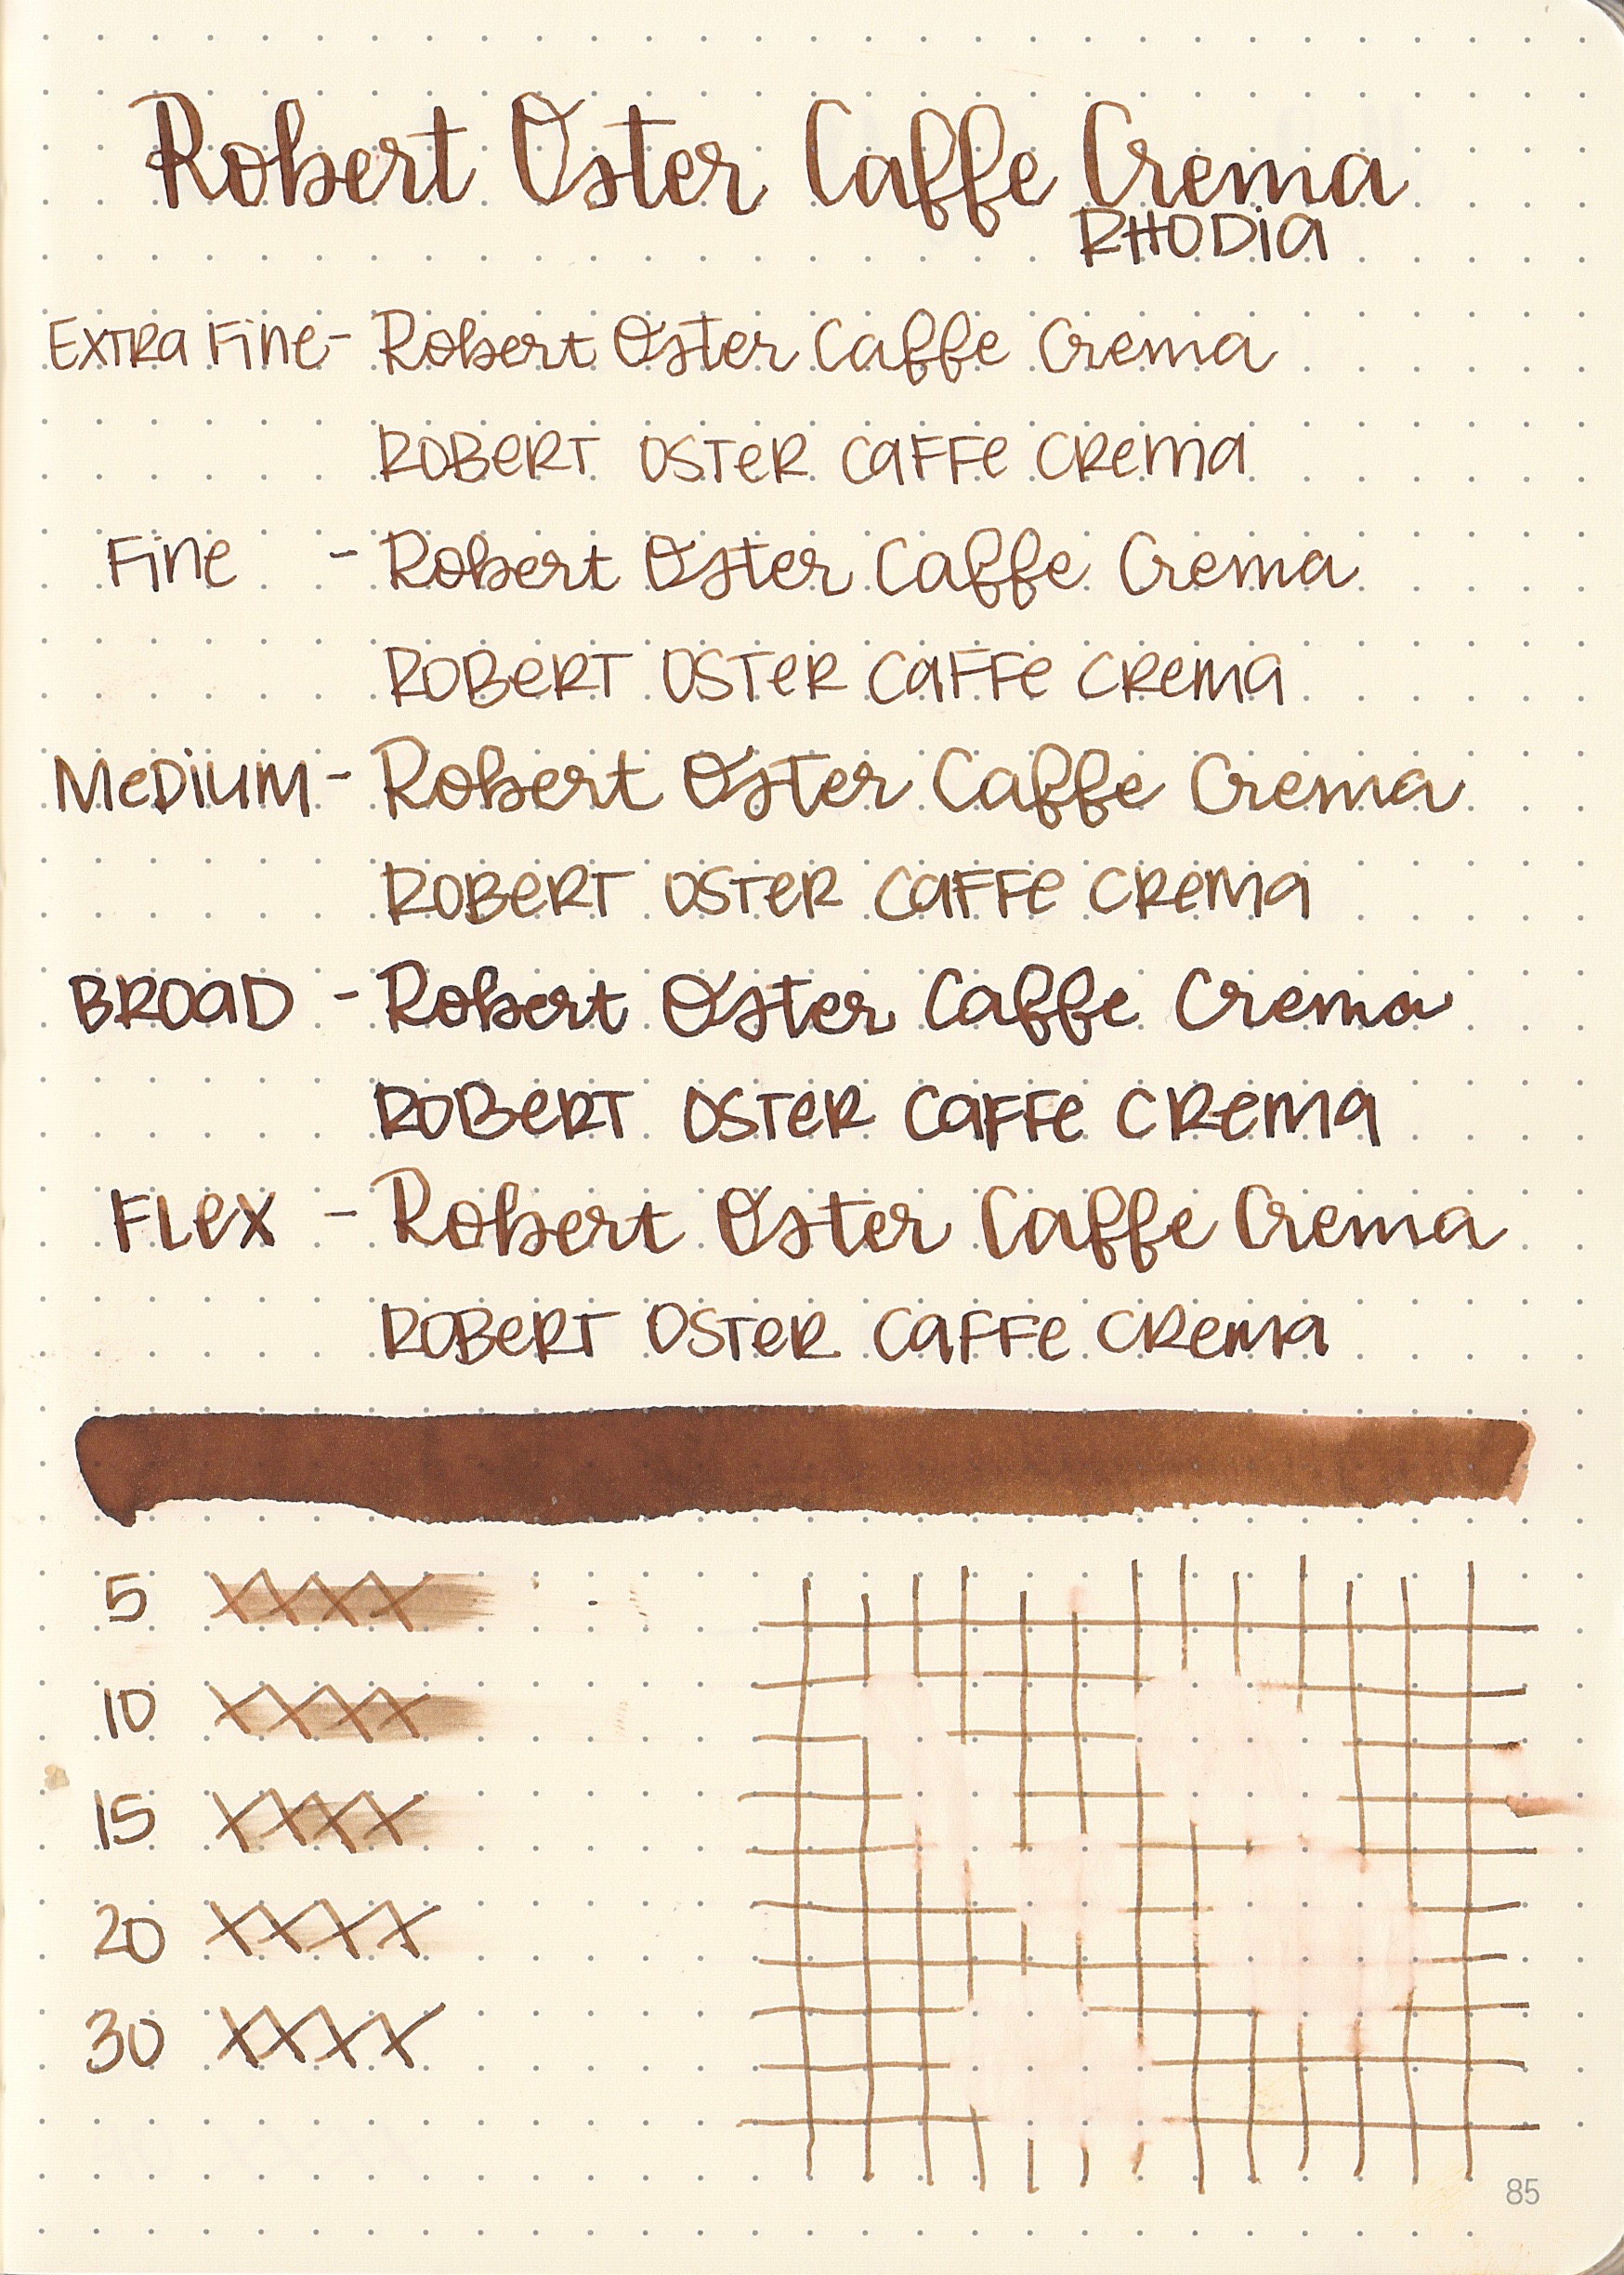 Robert Oster Caffe Crema
RHODIA
Extra Fine - Robert Oster Caffe Crema
ROBERT OSTER CAFFE CREMA
Fine - Robert Oster Caffe Crema
ROBERT OSTER CAFFE CREMA
MEDIUM - Robert Oster Caffe Crema
ROBERT OSTER CAFFE CREMA
BROAD - Robert Oster Caffe Crema
ROBERT OSTER CAFFE CREMA
FLEX - Robert Oster Caffe Crema
ROBERT OSTER CAFFE CREMA
5 XXXX
10 XXXX
15 XXXX
20 XXXX
30 XXXX
85